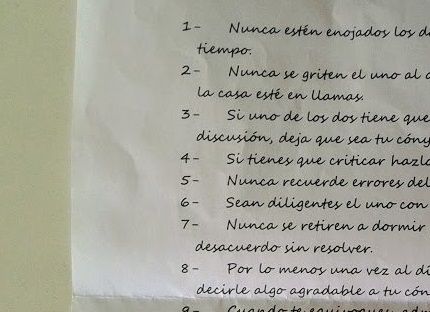 1- Nunca estén enojados los
tiempo.
2- Nunca se griten el uno al
la casa esté en llamas.
3- Si uno de los dos tiene que
discusión, deja que sea tu
4- Si tienes que criticar
5- Nunca recuerde errores del
6- Sean diligentes el uno con
7- Nunca se retiren a dormir
desacuerdo sin resolver.
8- Por lo menos una vez al
decirle algo agradable a tu
9- Cuando te equivoques,